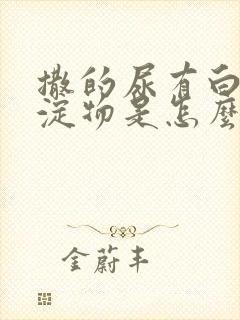 撒的尿有白
淀物是怎麼
金蔚丰